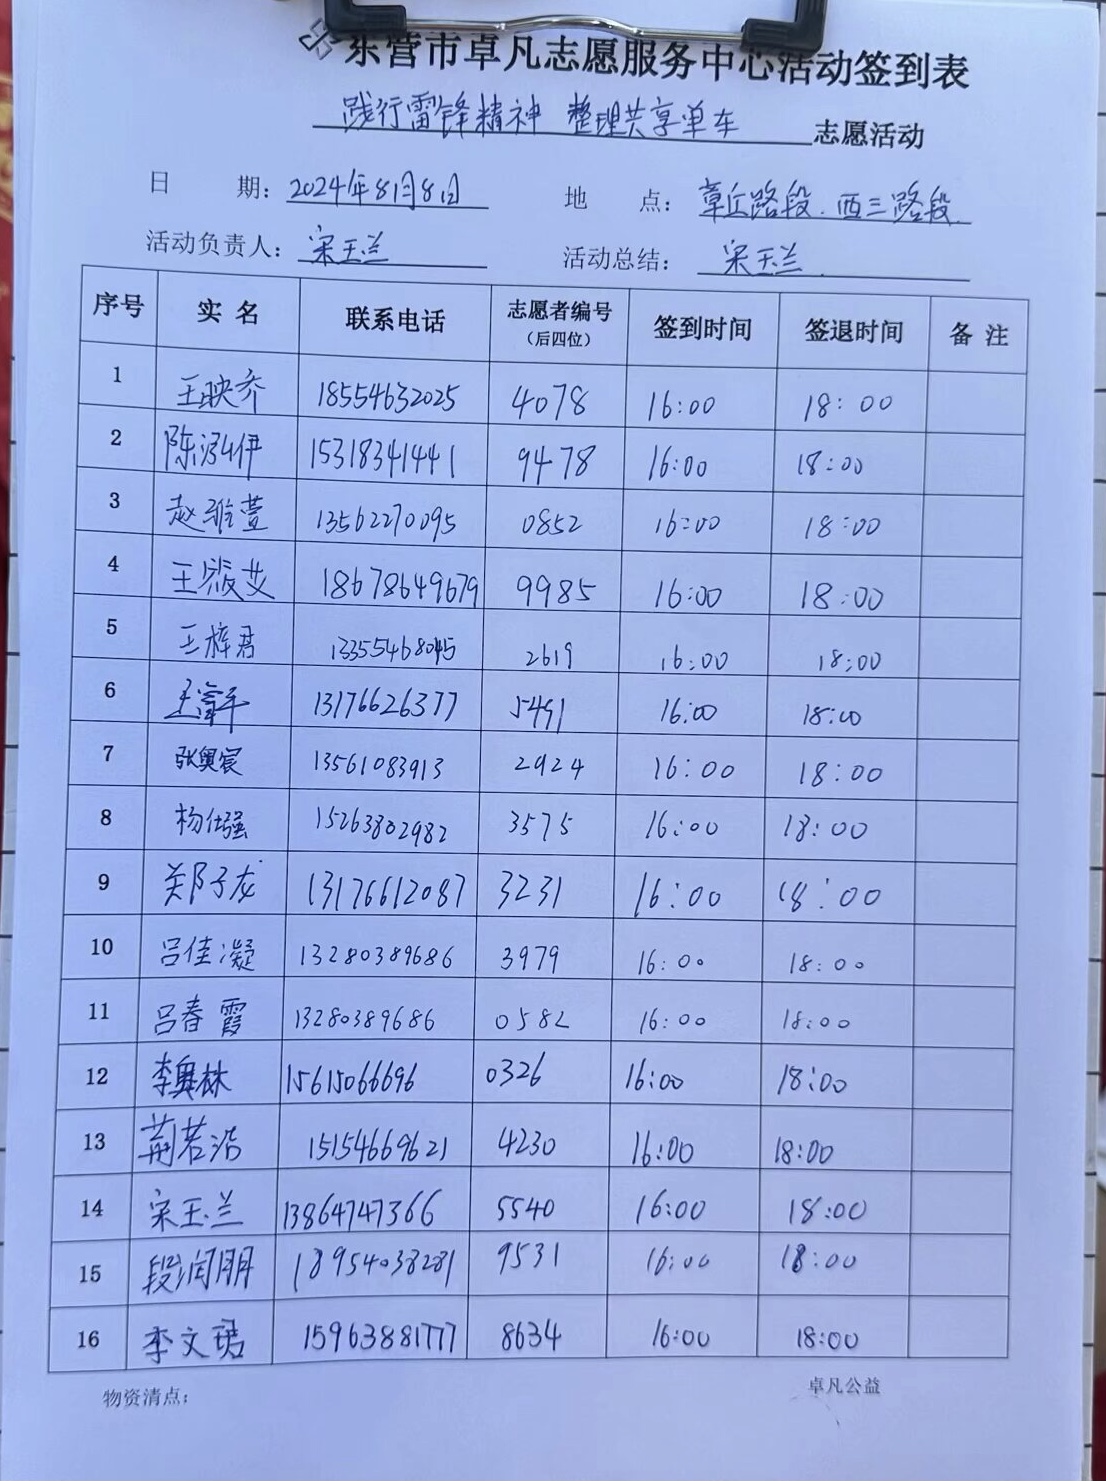 东营市卓凡志愿服务中心活动签到表
践行雷锋精神 整理共享单车 志愿活动
日 期：2024年8月8日 地 点：章丘路段.西三路段
活动负责人：宋玉兰 活动总结：宋玉兰
序号 实 名 联系电话 志愿者编号（后四位） 签到时间 签退时间 备 注
1 王映乔 18554632025 4078 16:00 18:00
2 陈泓伊 15318341441 9478 16:00 18:00
3 赵雅萱 13562270095 0852 16:00 18:00
4 王 18678649679 9985 16:00 18:00
5 王梓君 2619 16:00 18:00
6 13176626377 5491 16:00 18:00
7 张奥宸 13561083913 2924 16:00 18:00
8 杨仕强 15263802982 3575 16:00 18:00
9 郑子龙 13176612087 3231 16:00 18:00
10 吕佳凝 13280389686 3979 16:00 18:00
11 吕春霞 13280389686 0582 16:00 18:00
12 李奥林 15615066696 0326 16:00 18:00
13 荆若浩 15154669621 4230 16:00 18:00
14 宋玉兰 13864747366 5540 16:00 18:00
15 段润朋 18954038281 9531 16:00 18:00
16 李文珺 15963881777 8634 16:00 18:00
物资清点： 卓凡公益